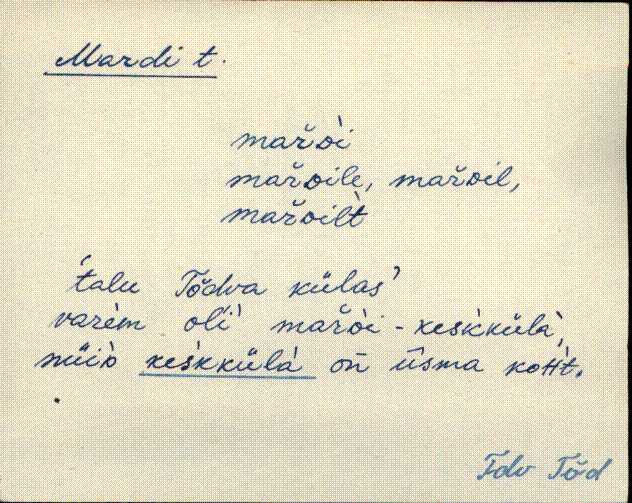 Mardi t.
mar̆ᴅ̀i
mar̆ᴅile, mar̆ᴅil,
mar̆ᴅilt̀
'talu Tõdva külas'
varèm oĺi mar̆ᴅ̀i-keśkkülà,
müiᴅ̀ keśkkülà oǹ ūsma koht̀.
Tdv Tõd